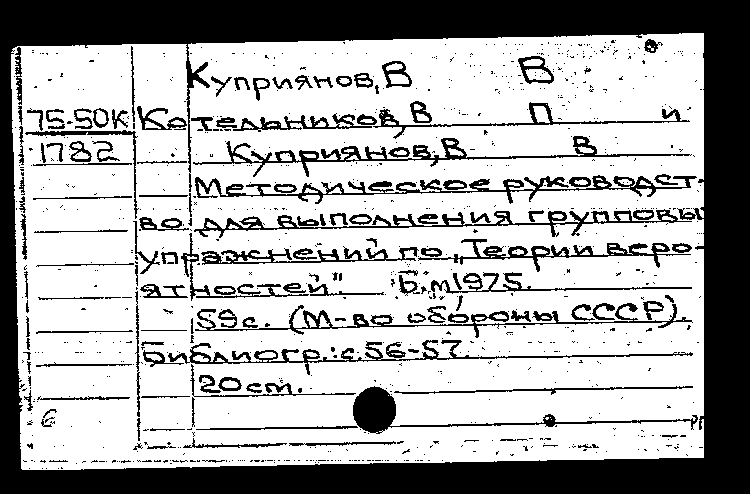 Куприянов, В В
75-50К Котельников, В П и
1782 Куприянов, В В
Методическое руководст-
во для выполнения групповы
упражнений по „Теории веро-
ятностей". Б.м, 1975.
59с. (М-во обороны СССР).
Библиогр.: с.56-57.
20cm.
6